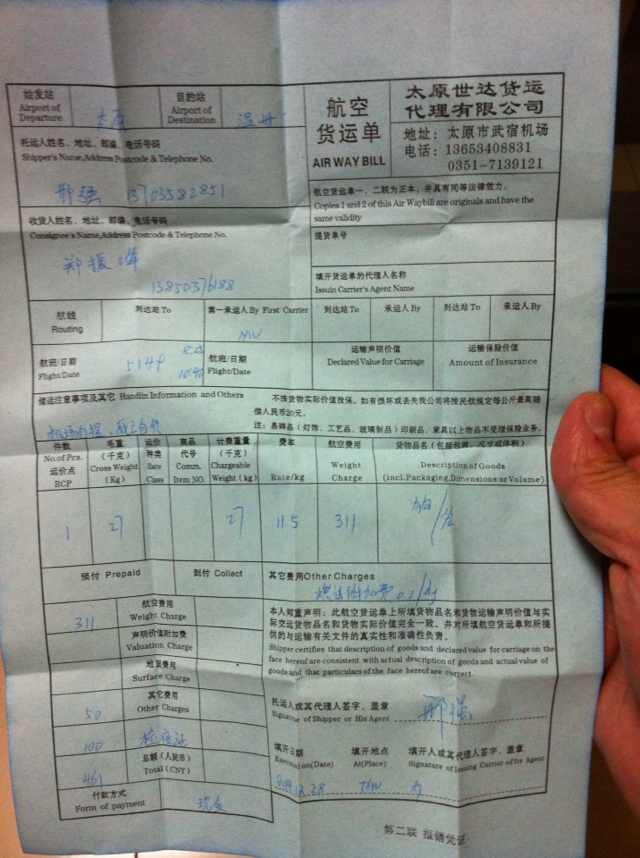 始发站
Airport of
Departure
太原
目的站
Airport of
Destination
温州
航空
货运单
AIR WAY BILL
太原世达货运
代理有限公司
地址：太原市武宿机场
电话：13653408831
0351-7139121
托运人姓名、地址、邮编、电话号码
Shipper's Name,Address Postcode & Telephone No.
邢强 13703582851
航空货运单一、二联为正本，并具有同等法律效力。
Copies 1 and 2 of this Air Waybill are originals and have the
same validity
收货人姓名、地址、邮编、电话号码
Consignee's Name,Address Postcode & Telephone No.
郑振峰
13850376188
提货单号
填开货运单的代理人名称
Issuin Carrier's Agent Name
航线
Routing
到达站 To
第一承运人 By First Carrier
MU
到达站 To
承运人 By
到达站 To
承运人 By
航班/日期
Flight/Date
5149
航班/日期
Flight/Date
运输声明价值
Declared Value for Carriage
运输保险价值
Amount of Insurance
储运注意事项及其它 Handin Information and Others
不按货物实际价值投保，如有损坏或丢失我公司将按民航规定每公斤最高赔
偿人民币20元。
注：易碎品（灯饰、工艺品、玻璃制品）印刷品、家具以上物品不受理保险业务。
机场自提
件数
No.of Pcs.
运价点
RCP
毛重
（千克）
Cross Weight
(Kg)
运价
种类
Rate
Class
商品
代号
Comm.
Item NO.
计费重量
（千克）
Chargeable
Weight (kg)
费率
Rate/kg
航空费用
Weight
Charge
货物品名（包括包装、尺寸或体积）
Description of Goods
(incl.Packaging,Dimensions or Valume)
1
27
27
11.5
311
预付 Prepaid
到付 Collect
其它费用Other Charges
311
航空费用
Weight Charge
声明价值附加费
Valuation Charge
地面费用
Surface Charge
其它费用
Other Charges
50
100
总额（人民币）
Total (CNY)
461
付款方式
Form of payment
现金
本人郑重声明：此航空货运单上所填货物品名和货物运输声明价值与实
际交运货物品名和货物实际价值完全一致。并对所填航空货运单和所提
供的与运输有关文件的真实性和准确性负责。
Shipper certifies that description of goods and declared value for carriage on the
face hereof are consistent with actual description of goods and actual value of
goods and that particulars of the face hereof are correct.
托运人或其代理人签字、盖章
Signature of Shipper or His Agent
邢强
填开日期
Execution(Date)
填开地点
At(Place)
填开人或其代理人签字、盖章
Signature of Issuing Carrier or Its Agent
TYN
第二联 报销凭证